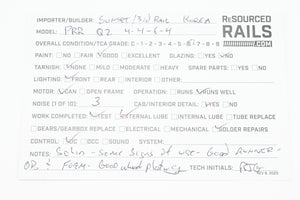 IMPORTER/BUILDER: SUNSET / 3rd RAIL KOREA
ReSOURCED
RAILS
.COM
MODEL: PRR Q2 4-4-6-4
OVERALL CONDITION/TCA GRADE: C-1-2-3-4-5-6-7-8-9
PAINT: NO FAIR GOOD EXCELLENT GLAZING: YES NO
TARNISH: NONE MILD MODERATE HEAVY SPARE PARTS: YES NO
LIGHTING: FRONT REAR INTERIOR OTHER:
MOTOR: CAN OPEN FRAME OPERATION: RUNS RUNS WELL
NOISE (1 OF 10): 3 CAB/INTERIOR DETAIL: YES NO
WORK COMPLETED: TEST EXTERNAL LUBE INTERNAL LUBE TUBE REPLACE
GEARS/GEARBOX REPLACE ELECTRICAL MECHANICAL SOLDER REPAIRS
CONTROL: DC DCC SOUND SYSTEM:
NOTES: - Some signs of use - Good runner -
Good wheel plating TECH INITIALS: